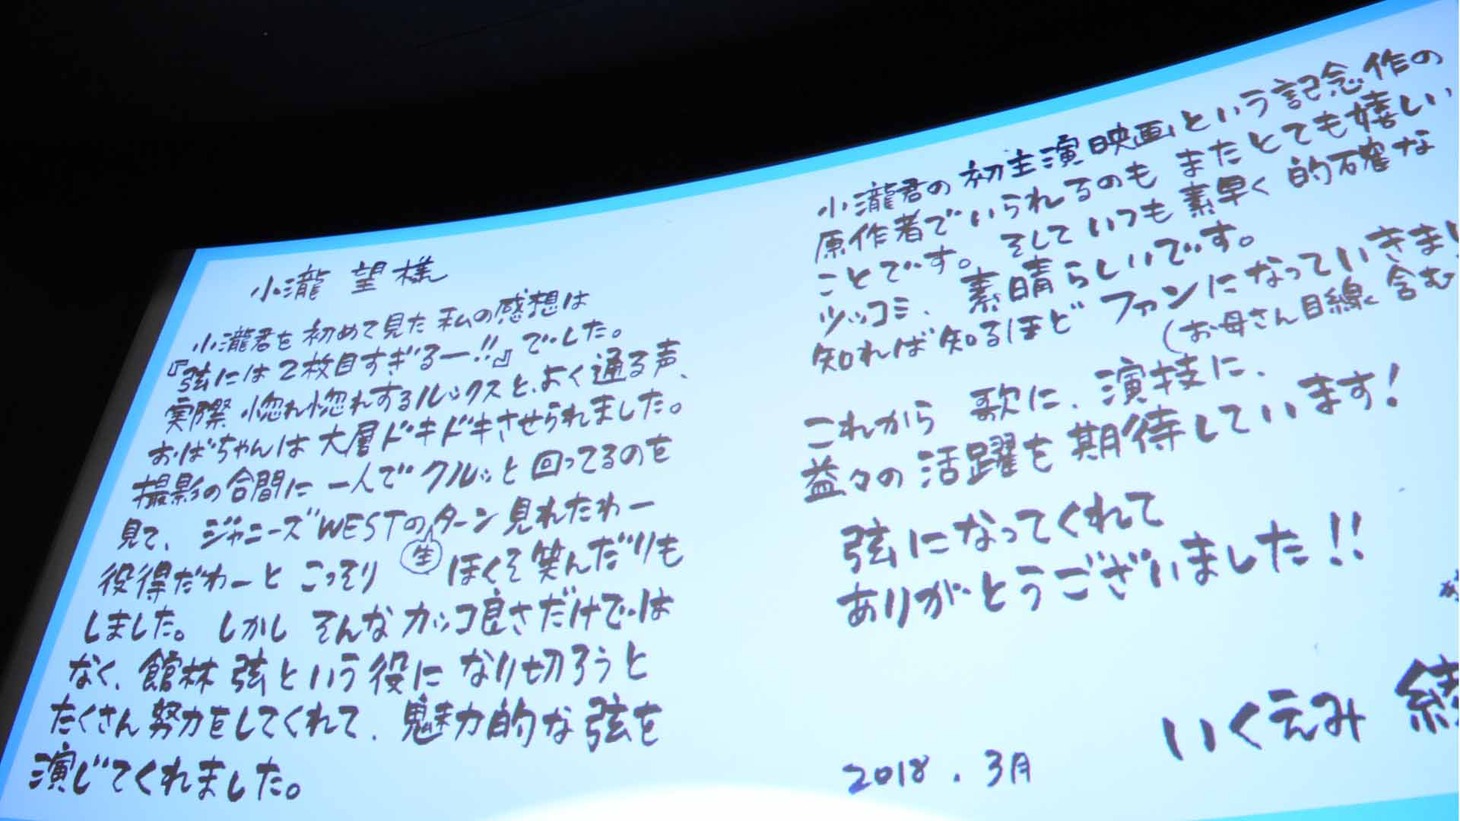 小瀧 望 様
小瀧君を初めて見た私の感想は
『弦には2枚目すぎるー!!』でした。
実際 惚れ惚れするルックスと、よく通る声、
おばちゃんは大層ドキドキさせられました。
撮影の合間に一人でクルッと回ってるのを
見て、ジャニーズWESTの生ターン見れたわー
役得だわーと こっそり ほくそ笑んだりも
しました。しかし そんなカッコ良さだけでは
なく、館林 弦という役に なり切ろうと
たくさん努力をしてくれて、魅力的な弦を
演じてくれました。
小瀧君の初主演映画という記念作の
原作者でいられるのも またとても嬉しい
ことです。そしていつも素早く 的確な
ツッコミ、素晴らしいです。
知れば知るほど ファンになっていきまし
(お母さん目線 含む
これから 歌に、演技に、
益々の活躍を期待しています!
弦になってくれて
ありがとうございました!!
2018.3月
いくえみ 綾